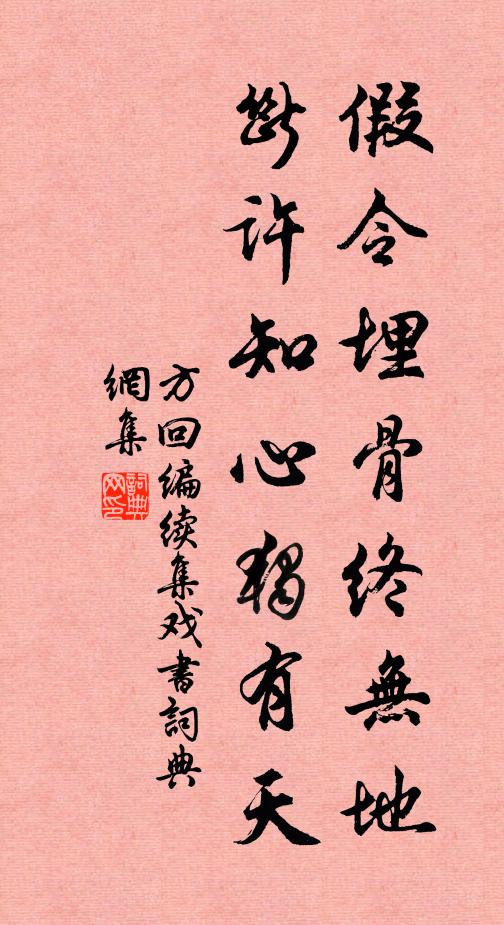 假令埋骨終無地
斷許知心獨有天
方回編续集戏書詞典
網集
詞典
网印